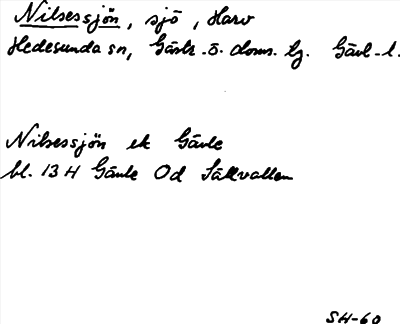 Nilsessjön, sjö, Harv
Hedesunda sn, Gästr. ö. doms. hg. Gävl. l.
Nilsessjön ek Gävle
bl. 13 H Gävle Od Sälkvallen
SH-60